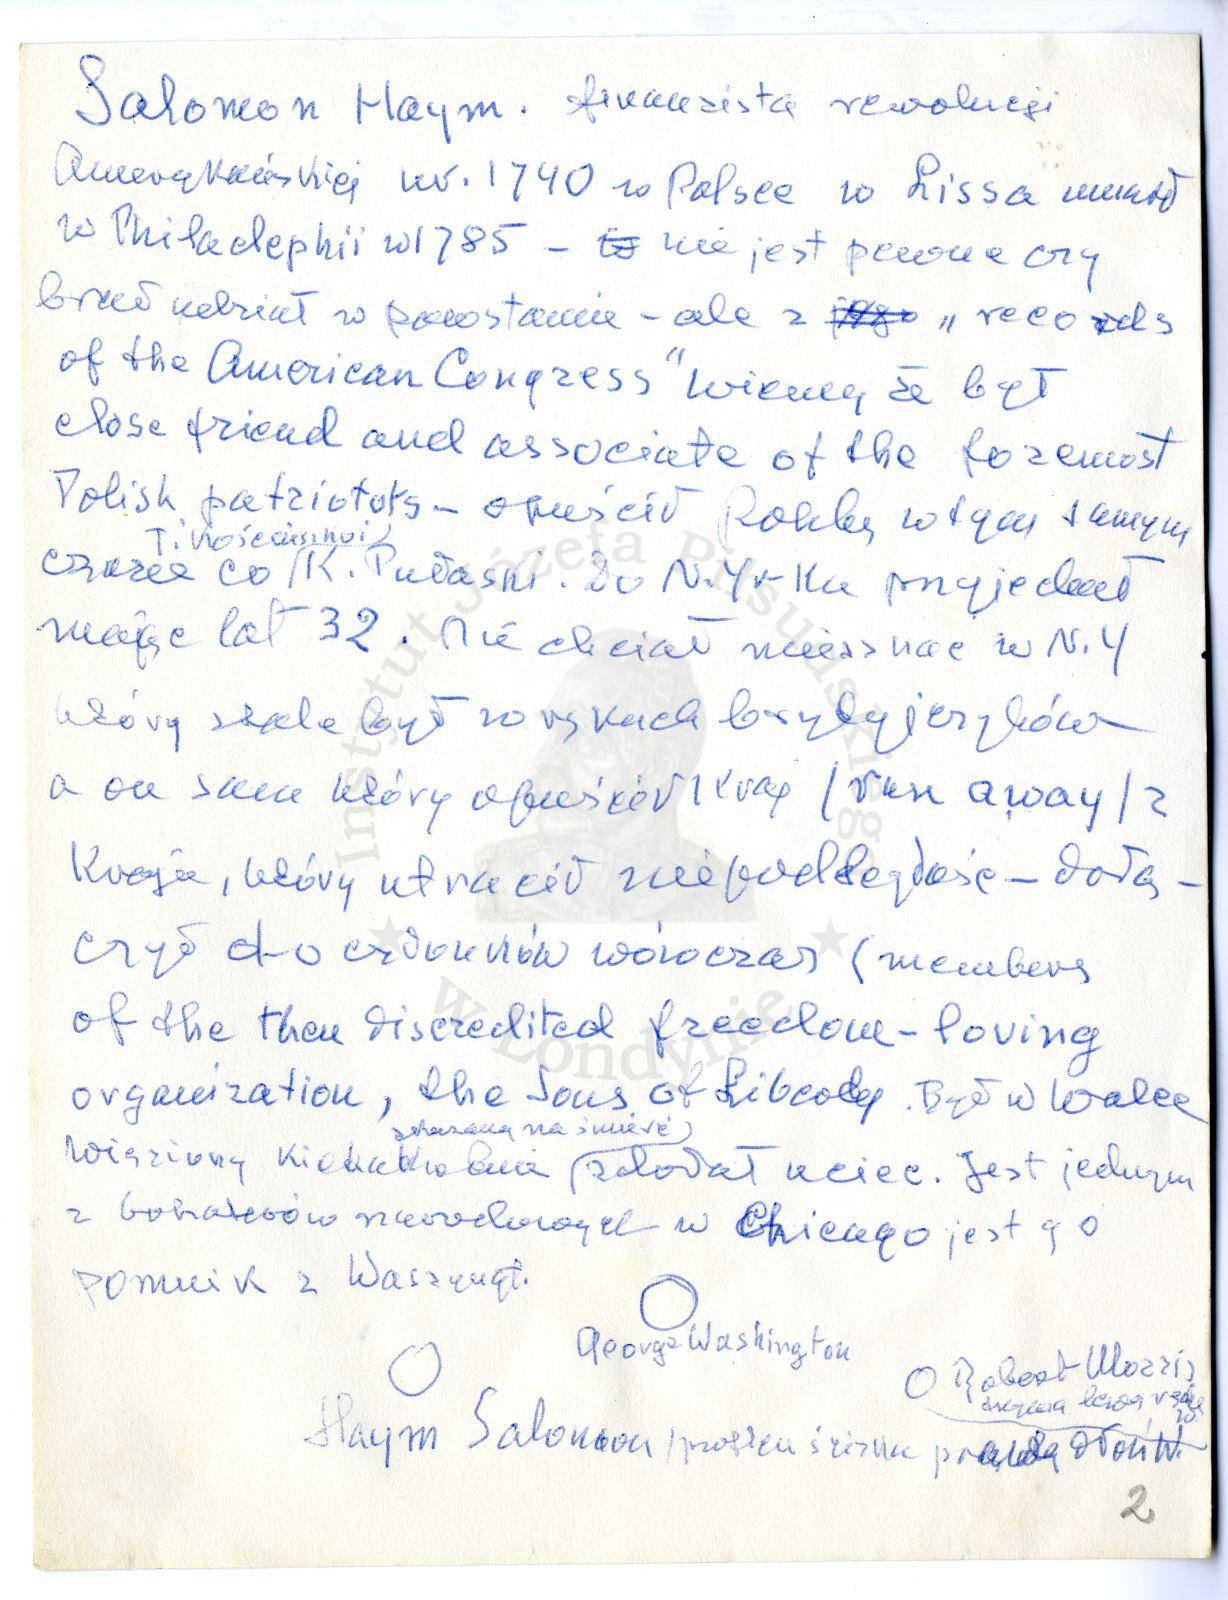 Salomon Haym. finansista rewolucji
Amerykańskiej ur. 1740 w Polsce w Lissa umarł
w Philadelphii w 1785 – to nie jest pewne czy
brał udział w powstaniu – ale z jego „records
of the American Congress" wiemy że był
close friend and associate of the foremost
Polish patriots – opuścił Polskę w tym samym
T. Kościuszkoi
czasie co /K. Pułaski. Do N.Yrku przyjechał
mając lat 32. Nie chciał mieszkać w N.Y
który stale był w rękach brytyjczyków
a on sam który opuścił kraj /run away/ z
Kraju, który utracił niepodległość – dołą-
czył do członków wówczas (members
of the then discredited freedom-loving
organization, the Sons of Liberty. Był w walce
skazany na śmierć
więziony zdołał uciec. Jest jednym
z bohaterów narodowych w Chicago jest go
pomnik z Waszyngt.
George Washington
Robert Morris
trzyma lewą rękę
Haym Salomon / prawą dłoń W.
2
Instytut Józefa Piłsudskiego
w Londynie